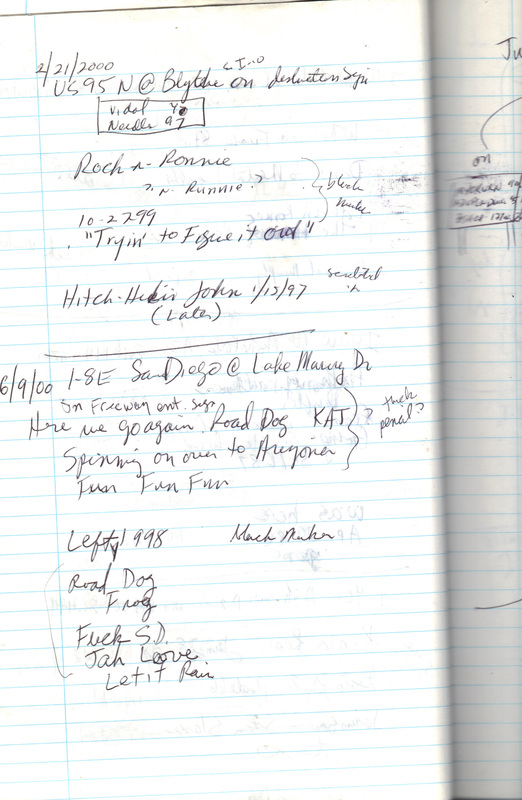 2/21/2000
US 95 N @ Blythe on destination sign
Vidal
Needles 97
Rock-n-Ronnie
?. N. Runnie. ?
black
10-27-99
"Tryin' to Figure it out"
Hitch-Hikin John 1/15/97
(Later)
6/9/00 I-8E San Diego @ Lake Murray Dr
on Freeway ent. sign
Here we go again. Road Dog KAT
? thick
pencil?
Spinning on over to Arizona
Fun Fun Fun
Lefty 1998 black marker
Road Dog
Frog
Fuck S.D.
Jah Love
Let it Rain
Ju
on